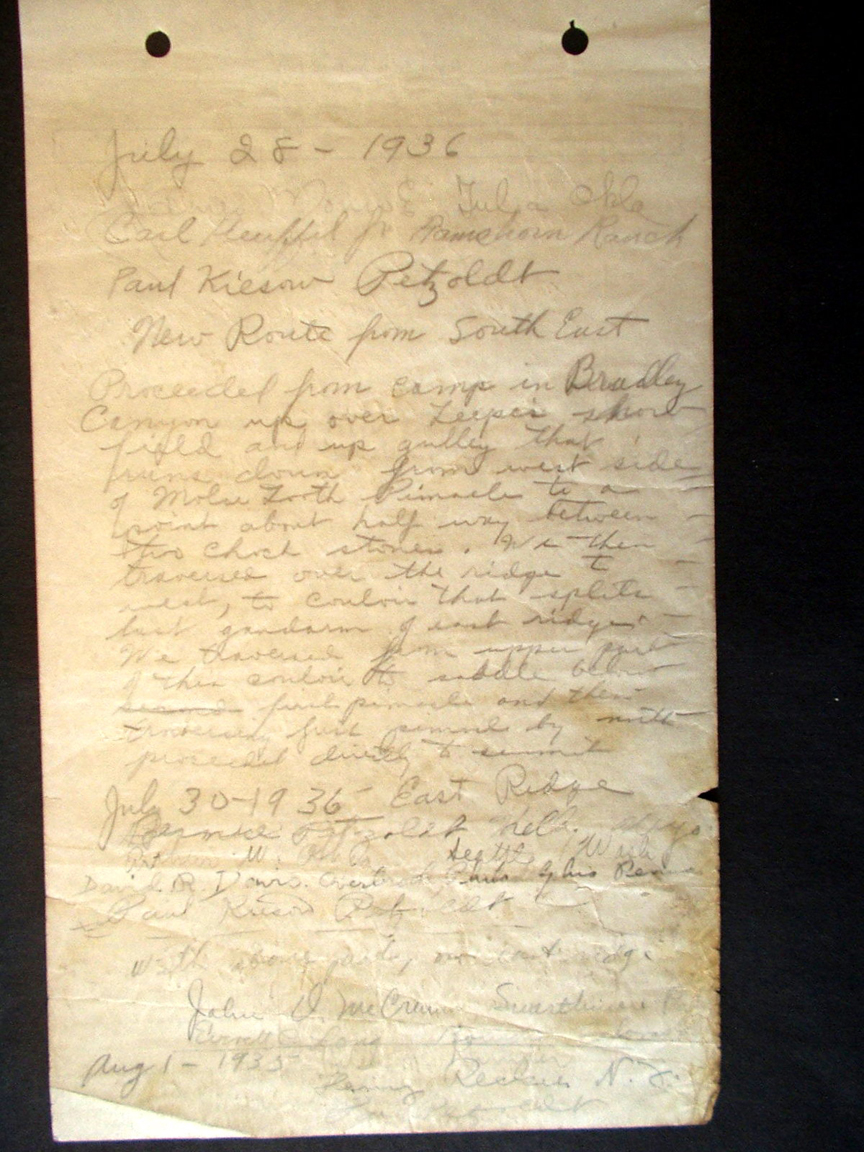 July 28 - 1936
Tulsa Okla
Carl Jr Ramshorn Ranch
Paul Kiesow Petzoldt
New Route from South East
Proceeded from camp in Bradley
Canyon up over Teepes snow
field and up gulley that
runs down from west side
of Molar Tooth Pinnacle to a
point about half way between
two chock stones. We then
traversed over the ridge to
west, to couloir that splits
last gandarm of east ridge.
We traversed from upper part
of this couloir to saddle below
second first pinnacle and then
traversing first by north
proceeded directly to summit
July 30-1936 East Ridge
Petzoldt
W. Seattle Wash
David R. Davis. Overbrook Philadelphia Penna
Paul Kiesow Petzoldt
with above party, on east ridge
John Swarthmore Pa
Everett Long
Aug 1 - 1935
N.J.